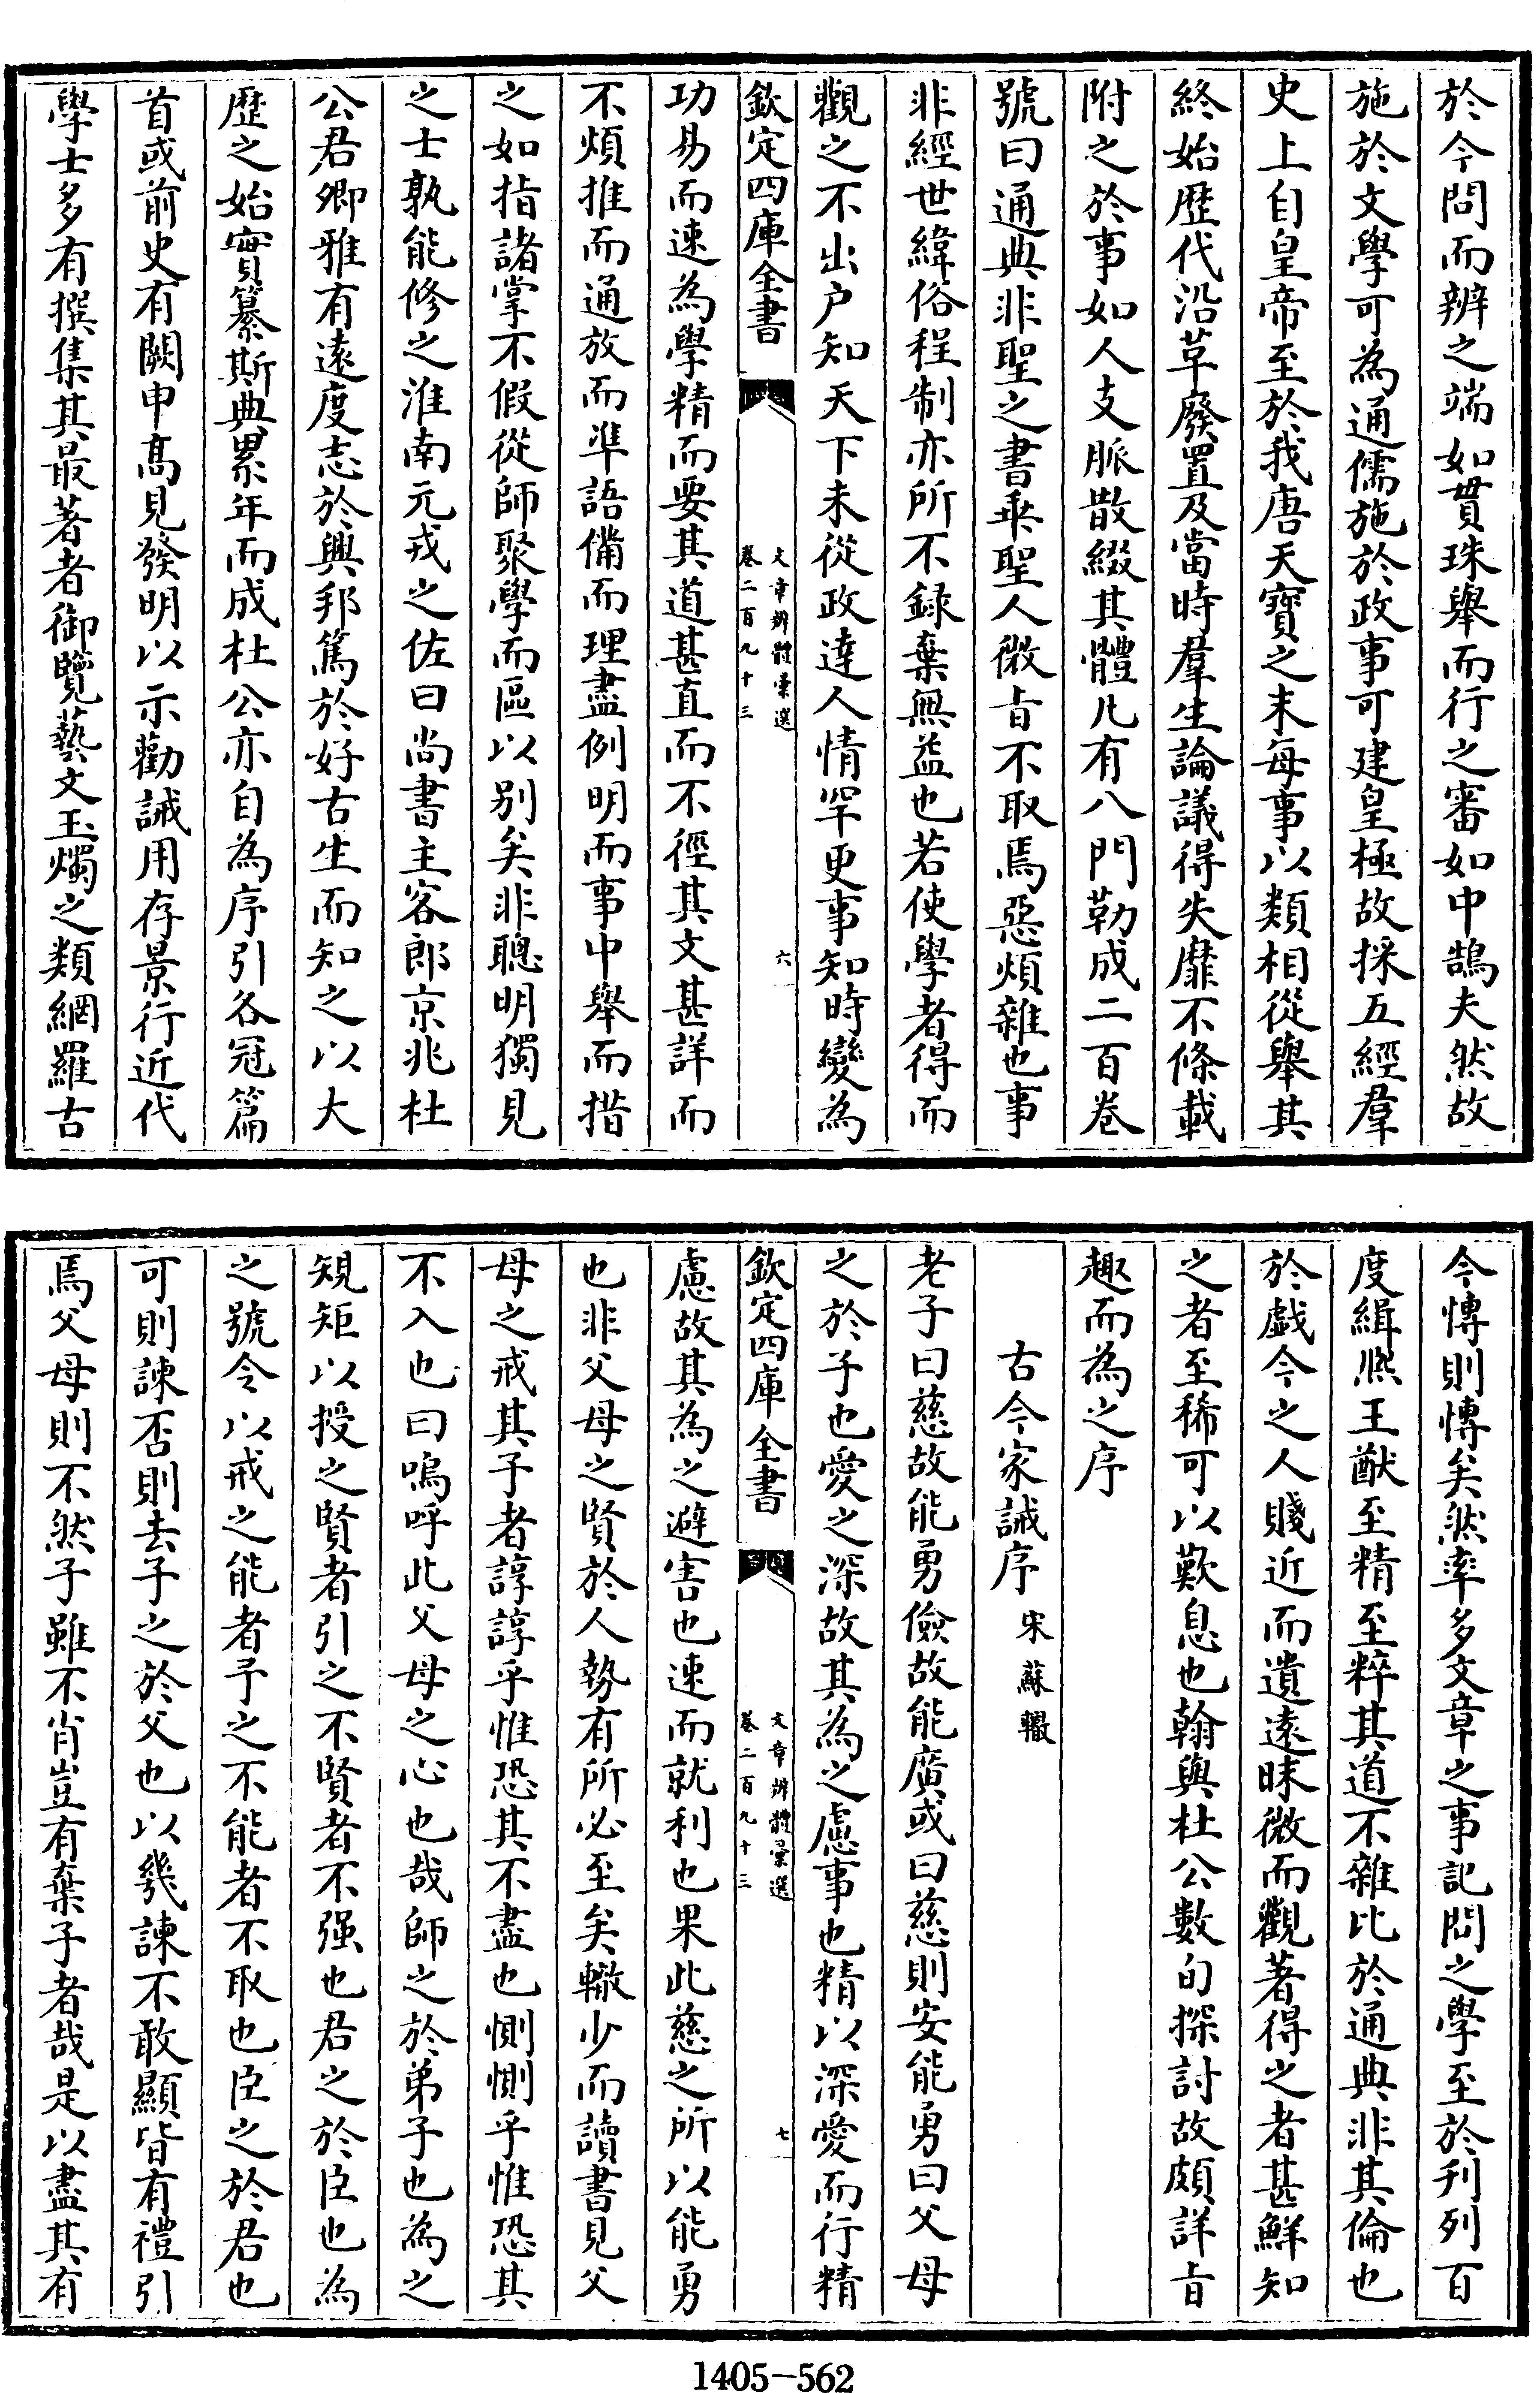 於今問而辨之端如貫珠舉而行之審如中鵠夫然故
施於文學可為通儒施於政事可建皇極故採五經羣
史上自皇帝至於我唐天寶之末每事以類相從舉其
終始歴代沿革廢置及當時羣生論議得失靡不條載
附之於事如人支脈散綴其體凡有八門勒成二百卷
號曰通典非聖之書乖聖人微㫖不取焉惡煩雜也事
非經世緯俗程制亦所不録棄無益也若使學者得而
觀之不出户知天下未從政達人情罕更事知時變為
欽定四庫全書
文章辨體彙選
卷二百九十三
六
功易而速為學精而要其道甚直而不徑其文甚詳而
不煩推而通放而凖語備而理盡例明而事中舉而措
之如指諸掌不假從師聚學而區以别矣非聰明獨見
之士孰能修之淮南元戎之佐曰尚書主客郎京兆杜
公君卿雅有逺度志於興邦篤於好古生而知之以大
歴之始實纂斯典累年而成杜公亦自為序引各冠篇
首或前史有闕申髙見發明以示勸誡用存景行近代
學士多有撰集其最著者御覽藝文玉燭之類網羅古
今愽則愽矣然率多文章之事記問之學至於刋列百
度緝熙王猷至精至粹其道不雜比於通典非其倫也
於戯今之人賤近而遺逺昧微而觀著得之者甚鮮知
之者至稀可以歎息也翰與杜公數旬探討故頗詳㫖
趣而為之序
古今家誡序
宋蘇轍
老子曰慈故能勇儉故能廣或曰慈則安能勇曰父母
之於子也愛之深故其為之慮事也精以深愛而行精
欽定四庫全書
文章辨體彙選
卷二百九十三
七
慮故其為之避害也速而就利也果此慈之所以能勇
也非父母之賢於人勢有所必至矣轍少而讀書見父
母之戒其子者諄諄乎惟恐其不盡也惻惻乎惟恐其
不入也曰嗚呼此父母之心也哉師之於弟子也為之
規矩以授之賢者引之不賢者不强也君之於臣也為
之號令以戒之能者予之不能者不取也臣之於君也
可則諫否則去子之於父也以幾諫不敢顯皆有禮引
焉父母則不然子雖不肖豈有棄子者哉是以盡其有
1405-562